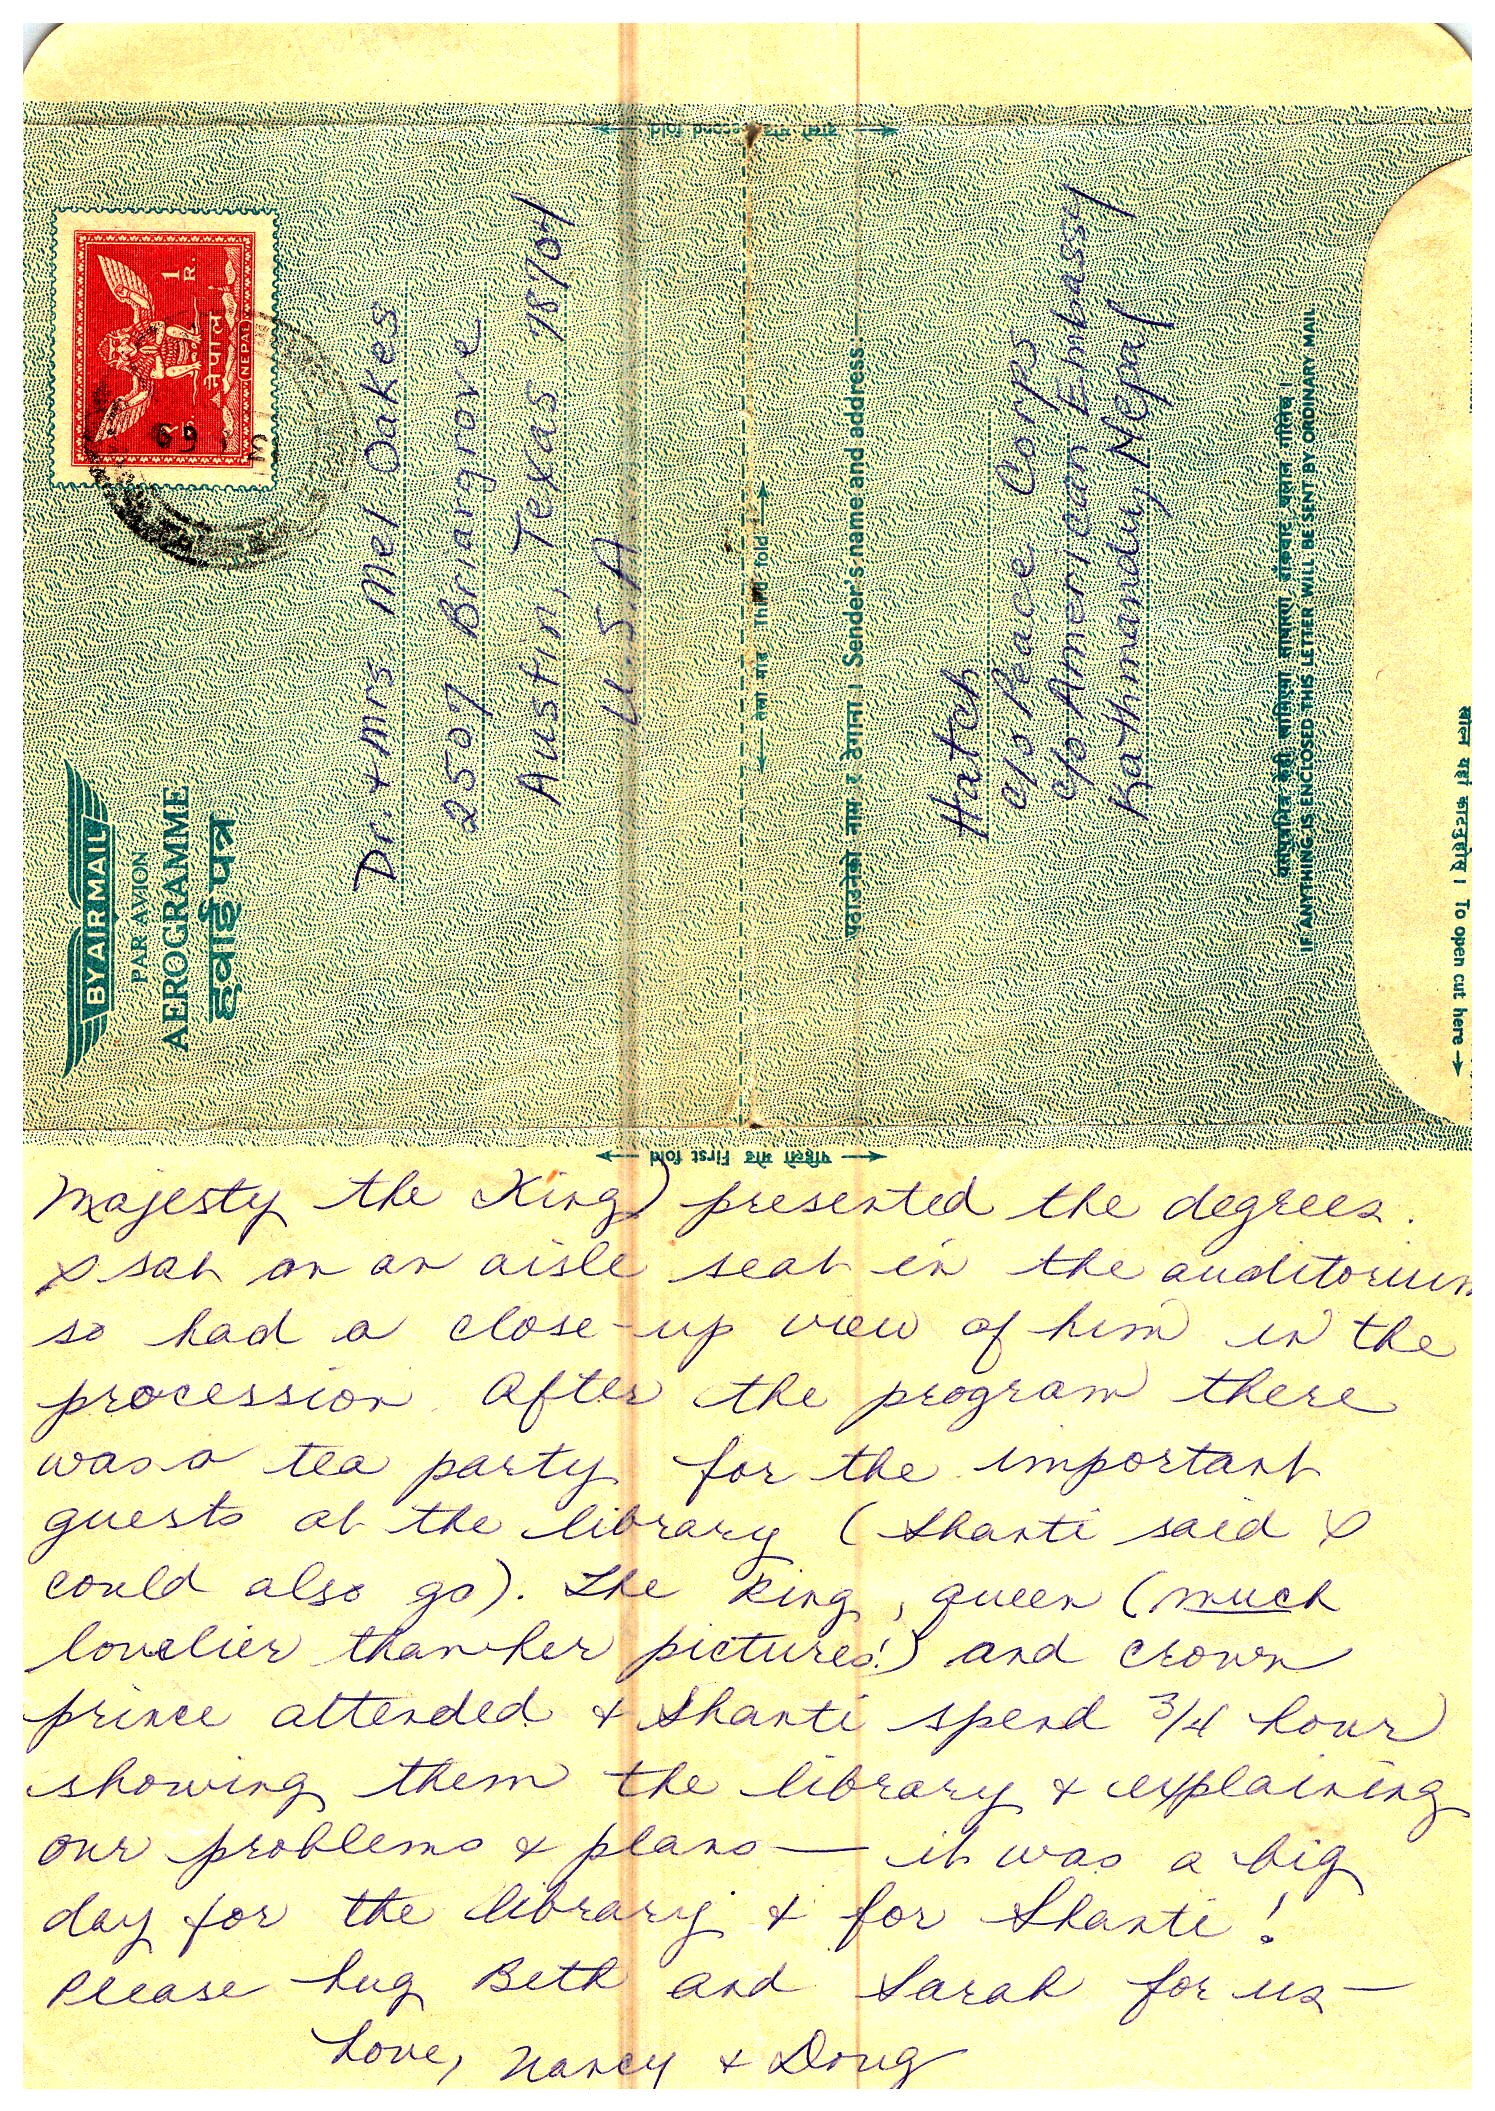 BY AIR MAIL
PAR AVION
AEROGRAMME
हवाई पत्र
1
R.
नेपाल
NEPAL
69
Dr. + Mrs Mel Oakes
2507 Briargrove
Austin, Texas 78704
U.S.A.
दोस्रो मोड Second fold
तेस्रो मोड Third fold
पठाउनेको नाम र ठेगाना । Sender's name and address
Hatch
c/o Peace Corps
c/o American Embassy
Kathmandu, Nepal
IF ANYTHING IS ENCLOSED THIS LETTER WILL BE SENT BY ORDINARY MAIL
To open cut here
पहिलो मोड First fold
Majesty the King) presented the degrees.
I sat on an aisle seat in the auditorium
so had a close-up view of him in the
procession. After the program there
was a tea party for the important
guests at the library (Shanti said I
could also go). The King, queen (much
lovelier than her pictures!) and crown
prince attended & Shanti spend 3/4 hour
showing them the library & explaining
our problems & plans — it was a big
day for the library & for Shanti!
Please hug Beth and Sarah for us —
Love, Nancy & Doug